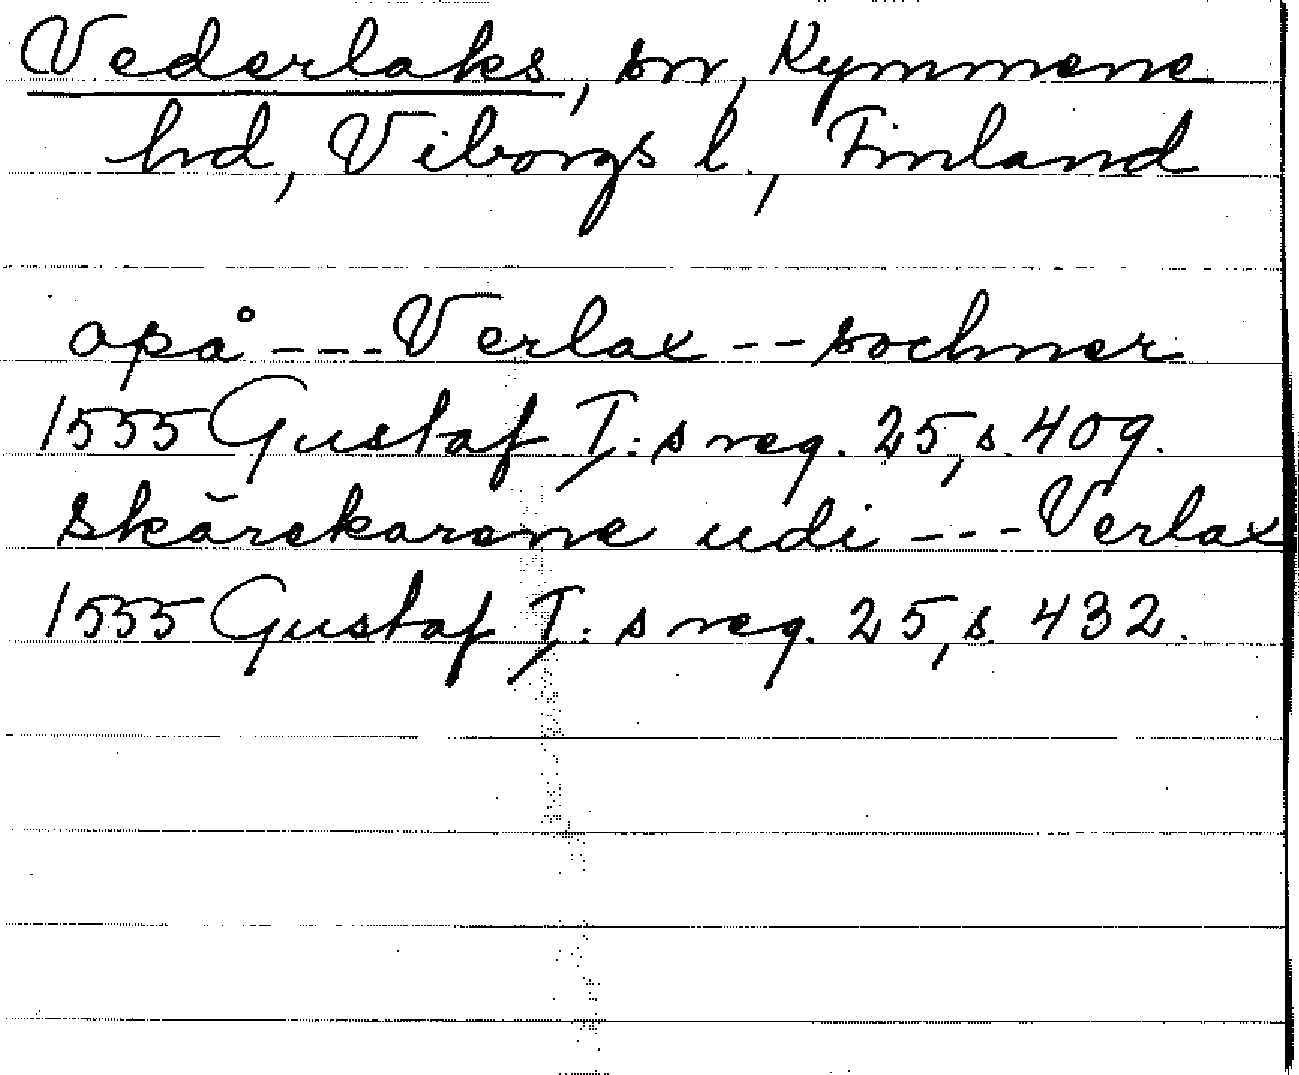 Vederlaks, sn, Kymmene
hd, Viborgs l., Finland
opå --- Verlax -- sochner
1555 Gustaf I:s reg. 25, s. 409.
Skärekarene udi --- Verlax
1555 Gustaf I:s reg. 25, s. 432.